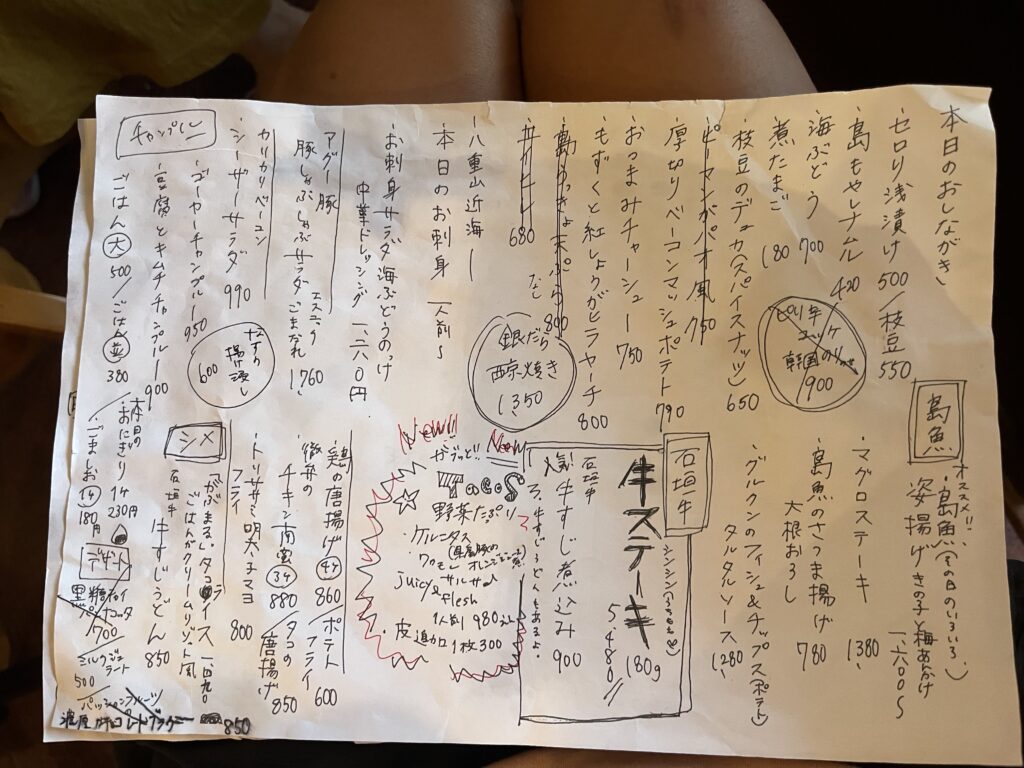 本日のおしながき
・セロリ浅漬け 500/枝豆 550
・島もやしナムル 420
・海ぶどう 700
・煮たまご 180
・枝豆のデュカ(スパイスナッツ) 650
・ピーマンガパオ風 750
・厚切りベーコンマッシュポテト 790
・おつまみチャーシュー 750
・もずくと紅しょうがヒラヤーチ 800
・島らっきょ天ぷら 800
なし
680
銀だら
西京焼き
1350
900
・八重山近海
本日のお刺身 一人前〜
お刺身サラダ海ぶどうのっけ
中華ドレッシング 一、二八〇円
アグー豚
豚しゃぶしゃぶサラダごまだれ
1760
カリカリベーコン
シーザーサラダ 990
なすの
揚げ浸し
600
チャンプルー
・ゴーヤーチャンプルー 950
・豆腐とキムチチャンプルー 900
・ごはん大 500/ごはん並 380
島魚
オススメ!!
・島魚(今日のいろいろ)
姿揚げきの子と梅あんかけ
一、六〇〇〜
・マグロステーキ 1380
・島魚のさつま揚げ 780
大根おろし
・グルクンのフィッシュ&チップス(ポテト)
タルタルソース 1280
石垣牛
牛ステーキ 180g
5480
石垣牛
人気!牛すじ煮込み 900
New!! New
ガブッと!!
Tacos
野菜たっぷり
ワカモレ
サルサ
juicy & flesh
1人前 980
皮追加 1枚300
・鶏の唐揚げ 4ケ 860/ポテトフライ 600
チキン南蛮 3ケ 880/タコの唐揚げ 850
・トリササミ明太子マヨフライ 800
シメ
・がぶまるタコライス 一四九〇
ごはんがクリームリゾット風
石垣牛
・牛すじうどん 850
本日の
おにぎり 1ケ 230円
ごましお 1ケ 180円
デザート
黒糖
700
ミルクジェラート
500
パッションフルーツ
850